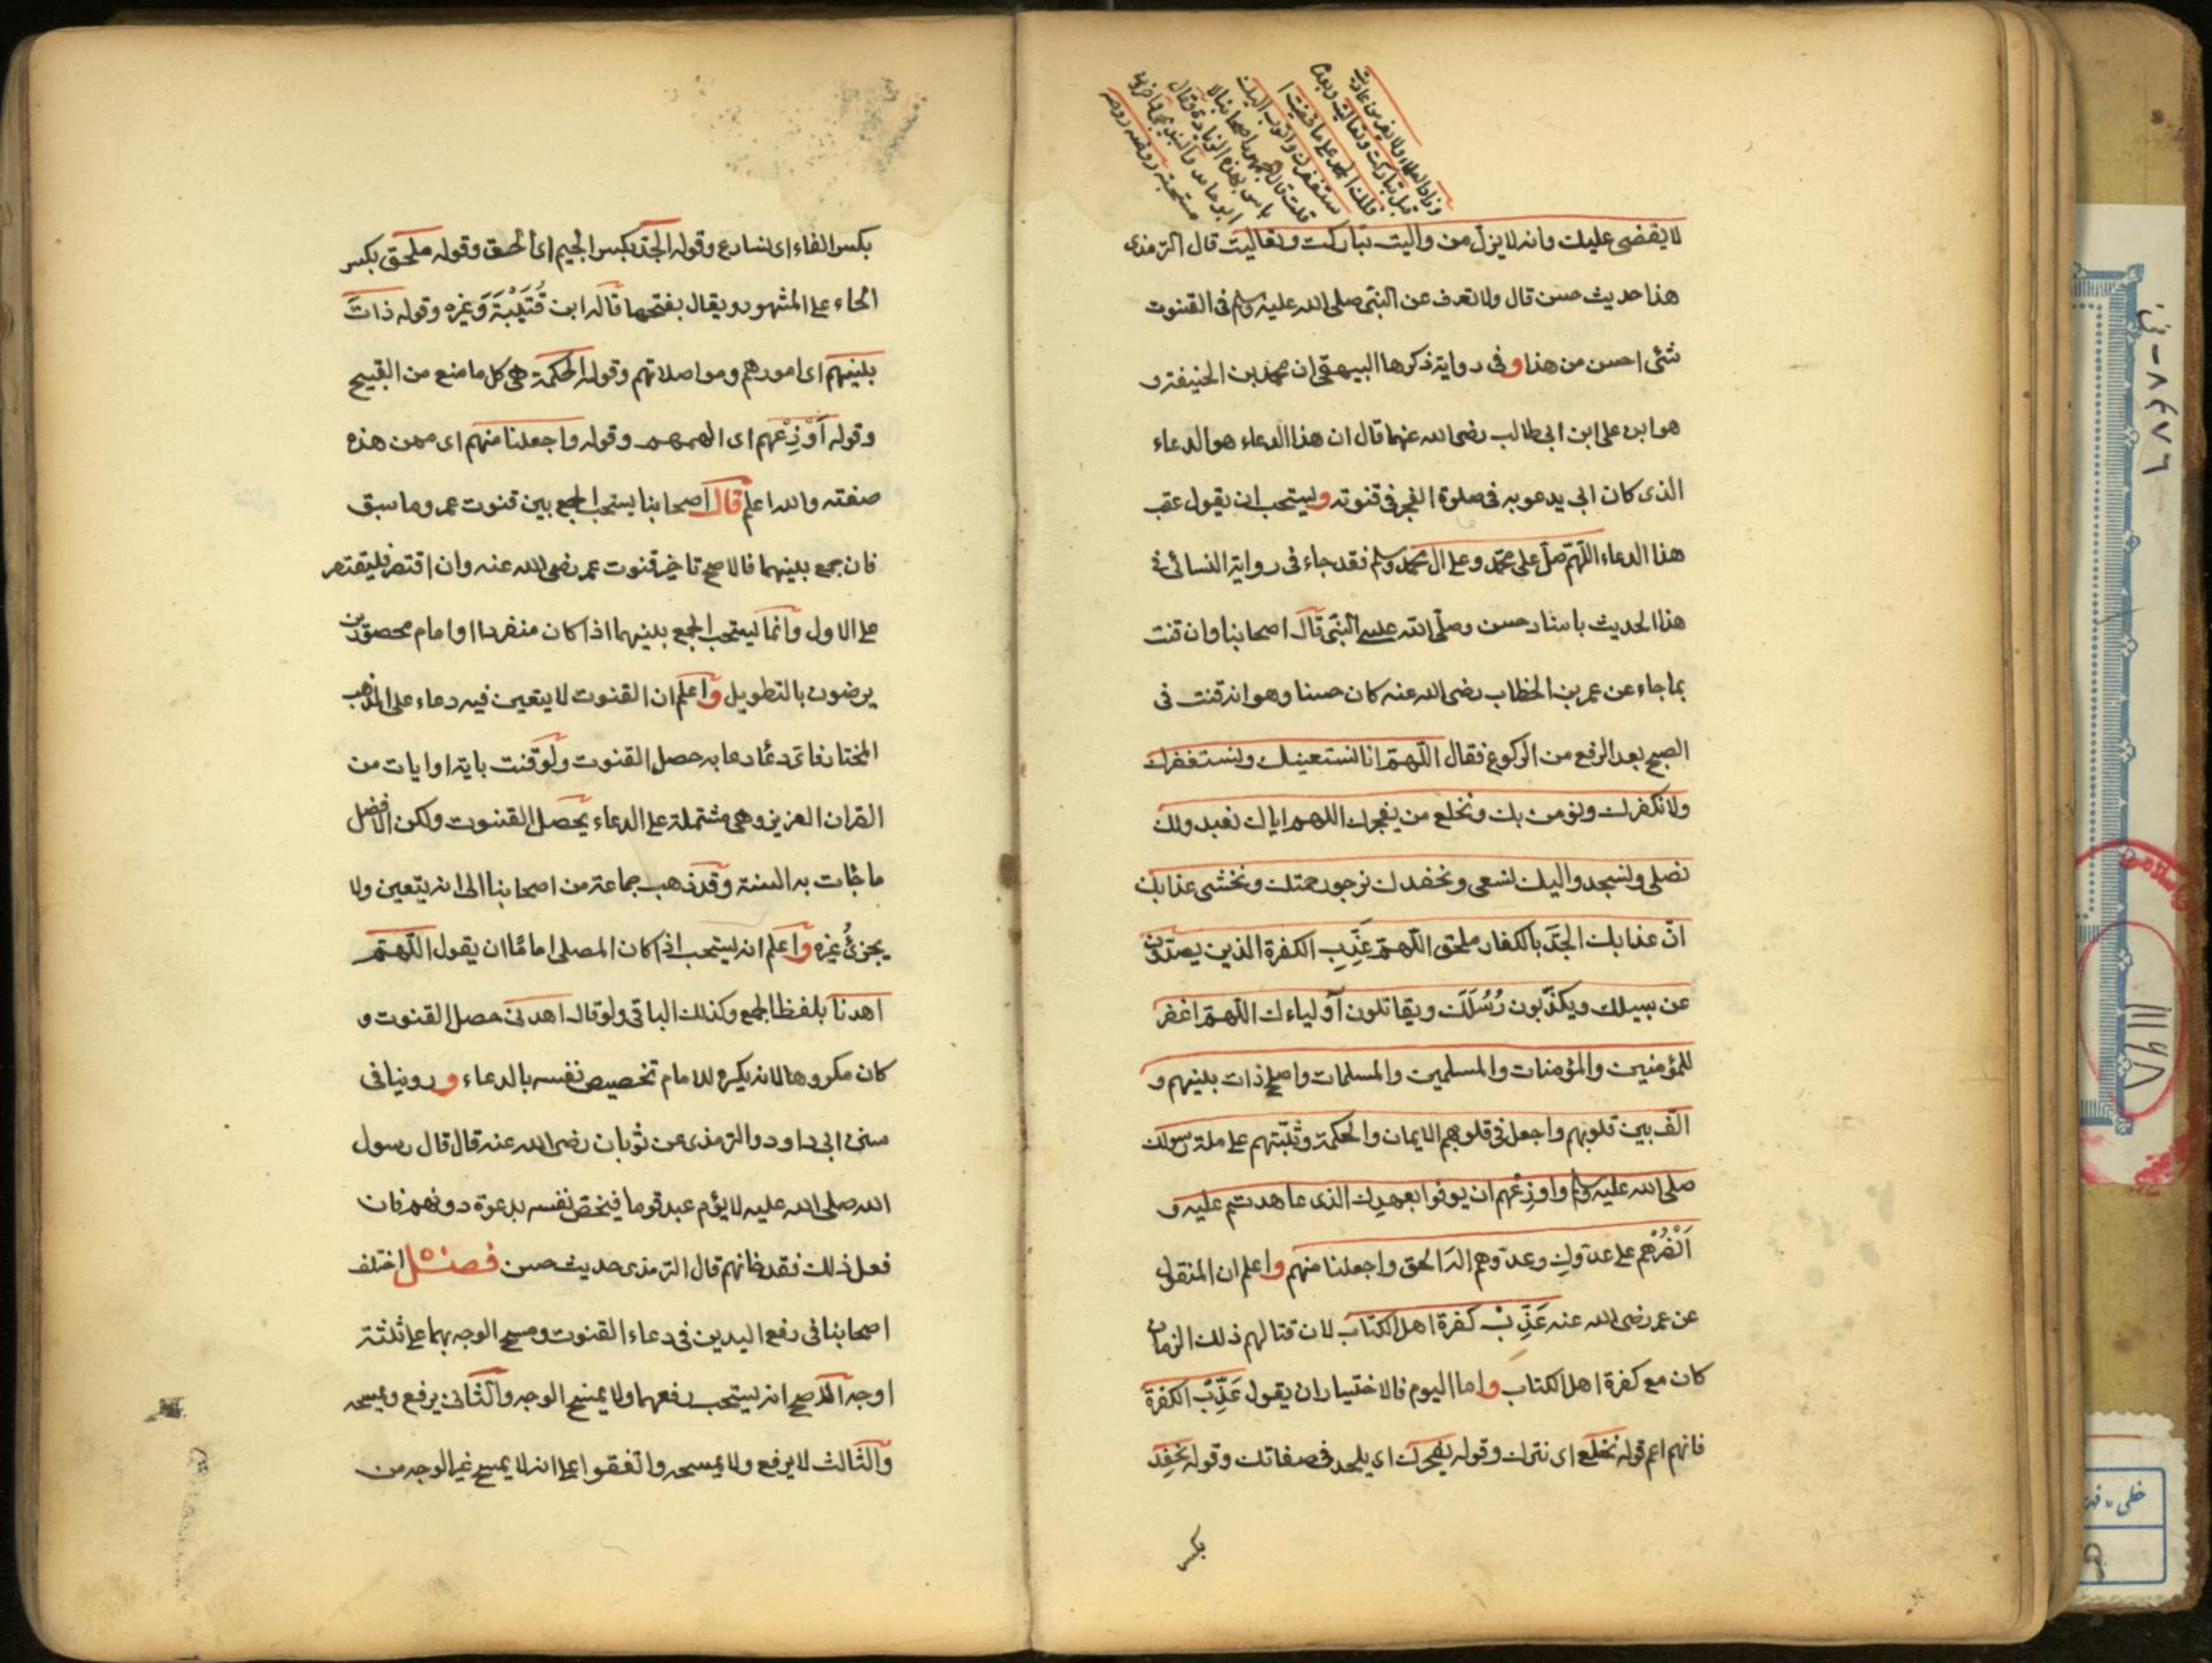 وزاد العلماء ولا يعز من عاديت
قبل تباركت وتعاليت وبعده
فلك الحمد على ما قضيت ا
ستغفرك واتوب اليك
قلت قال جمهور اصحابنا لا
باس بهذه الزيادة وقال
ابو حامد والبندنيجى واخرون
مستحبة روضه
لا يقضى عليك وانه لا يزل من واليت تباركت وتعاليت قال الترمذى
هذا حديث حسن قال ولا نعرف عن النبى صلى الله عليه وسلم فى القنوت
شئى احسن من هذا وفى رواية ذكرها البيهقى ان محمد بن الحنيفة و
هو ابن على ابن ابى طالب رضى الله عنهما قال ان هذا الدعاء هو الدعاء
الذى كان ابى يدعو به فى صلوة الفجر فى قنوته ويستحب ان يقول عقب
هذا الدعاء اللّهمّ صلّ على محمّد وعلى ال محمّد وسلم فقد جاء فى رواية النسائى فى
هذا الحديث باسناد حسن وصلّى اللّه على النّبىّ قال اصحابنا وان قنت
بما جاء عن عمر بن الخطاب رضى الله عنه كان حسنا وهو انه قنت فى
الصبح بعد الرفع من الركوع فقال اللّهمّ انا نستعينك ونستغفرك
ولا نكفرك ونؤمن بك ونخلع من يفجرك اللهم اياك نعبد ولك
نصلى ونسجد واليك نسعى ونحفدك نرجو رحمتك ونخشى عذابك
انّ عذابك الجدّ بالكفار ملحق اللّهمّ عَذِّبِ الكفرة الذين يصدّون
عن سبيلك ويكذّبون رُسُلَكَ ويقاتلون أولياءك اللّهمّ اغفر
للمؤمنين والمؤمنات والمسلمين والمسلمات واصلح ذات بينهم و
الّف بين قلوبهم واجعل فى قلوبهم الايمان والحكمة وثبّتهم على ملة رسولك
صلى الله عليه وسلم واوزعهم ان يوفوا بعهدك الذى عاهدتهم عليه و
اَنْصُرْهم على عدّوك وعدّوهم اله الحق واجعلنا منهم واعلم ان المنقول
عن عمر رضى الله عنه عَذِّبْ كفرة اهل الكتاب لان قتالهم ذلك الزمان
كان مع كفرة اهل الكتاب واما اليوم فالاختيار ان يقول عَذِّبْ الكفرة
فانهم اعم قوله نخلع اى نترك وقوله يفجرك اى يلحد فى صفاتك وقوله نحفِد
بكسر
بكسر الفاء اى نسارع وقوله الجدّ بكسر الجيم اى الحق وقوله ملحق بكسر
الحاء على المشهور ويقال بفتحها قاله ابن قُتَيْبَةَ وَغيره وقوله ذات
بينهم اى امورهم ومواصلاتهم وقوله الحكمة هى كل ما منع من القبيح
وقوله أَوْزِعْهم اى الهمهم وقوله واجعلنا منهم اى ممن هذه
صفته والله اعلم قال اصحابنا يستحب الجمع بين قنوت عمر وما سبق
فان جمع بينهما فالاصح تاخير قنوت عمر رضى الله عنه وان اقتصر فليقتصر
على الاول وانما يستحب الجمع بينهما اذا كان منفردا او امام محصورين
يرضون بالتطويل واعلم ان القنوت لا يتعين فيه دعاء على المذهب
المختار فاى دعاء دعا به حصل القنوت ولو قنت باية او ايات من
القران العزيز وهى مشتملة على الدعاء يحصل القنوت ولكن الافضل
ما جات به السنة وقد ذهب جماعة من اصحابنا الى انه يتعين ولا
يجزئُ غيره واعلم انه يستحب اذا كان المصلى امامًا ان يقول اللّهمّ
اهدنا بلفظ الجمع وكذلك الباقى ولو قال اهدنى حصل القنوت و
كان مكروها لانه يكره للامام تخصيص نفسه بالدعاء وروينا فى
سنن ابى داود والترمذى عن ثوبان رضى الله عنه قال قال رسول
الله صلى الله عليه لا يؤم عبد قوما فيخص نفسه بدعوة دونهم فان
فعل ذلك فقد خانهم قال الترمذى حديث حسن فصل اختلف
اصحابنا فى رفع اليدين فى دعاء القنوت ومسح الوجه بهما على ثلثة
اوجه الاصح انه يستحب رفعهما ولا يمسح الوجه والثانى يرفع ويمسحه
والثالث لا يرفع ولا يمسحه واتفقوا على انه لا يمسح غير الوجه من